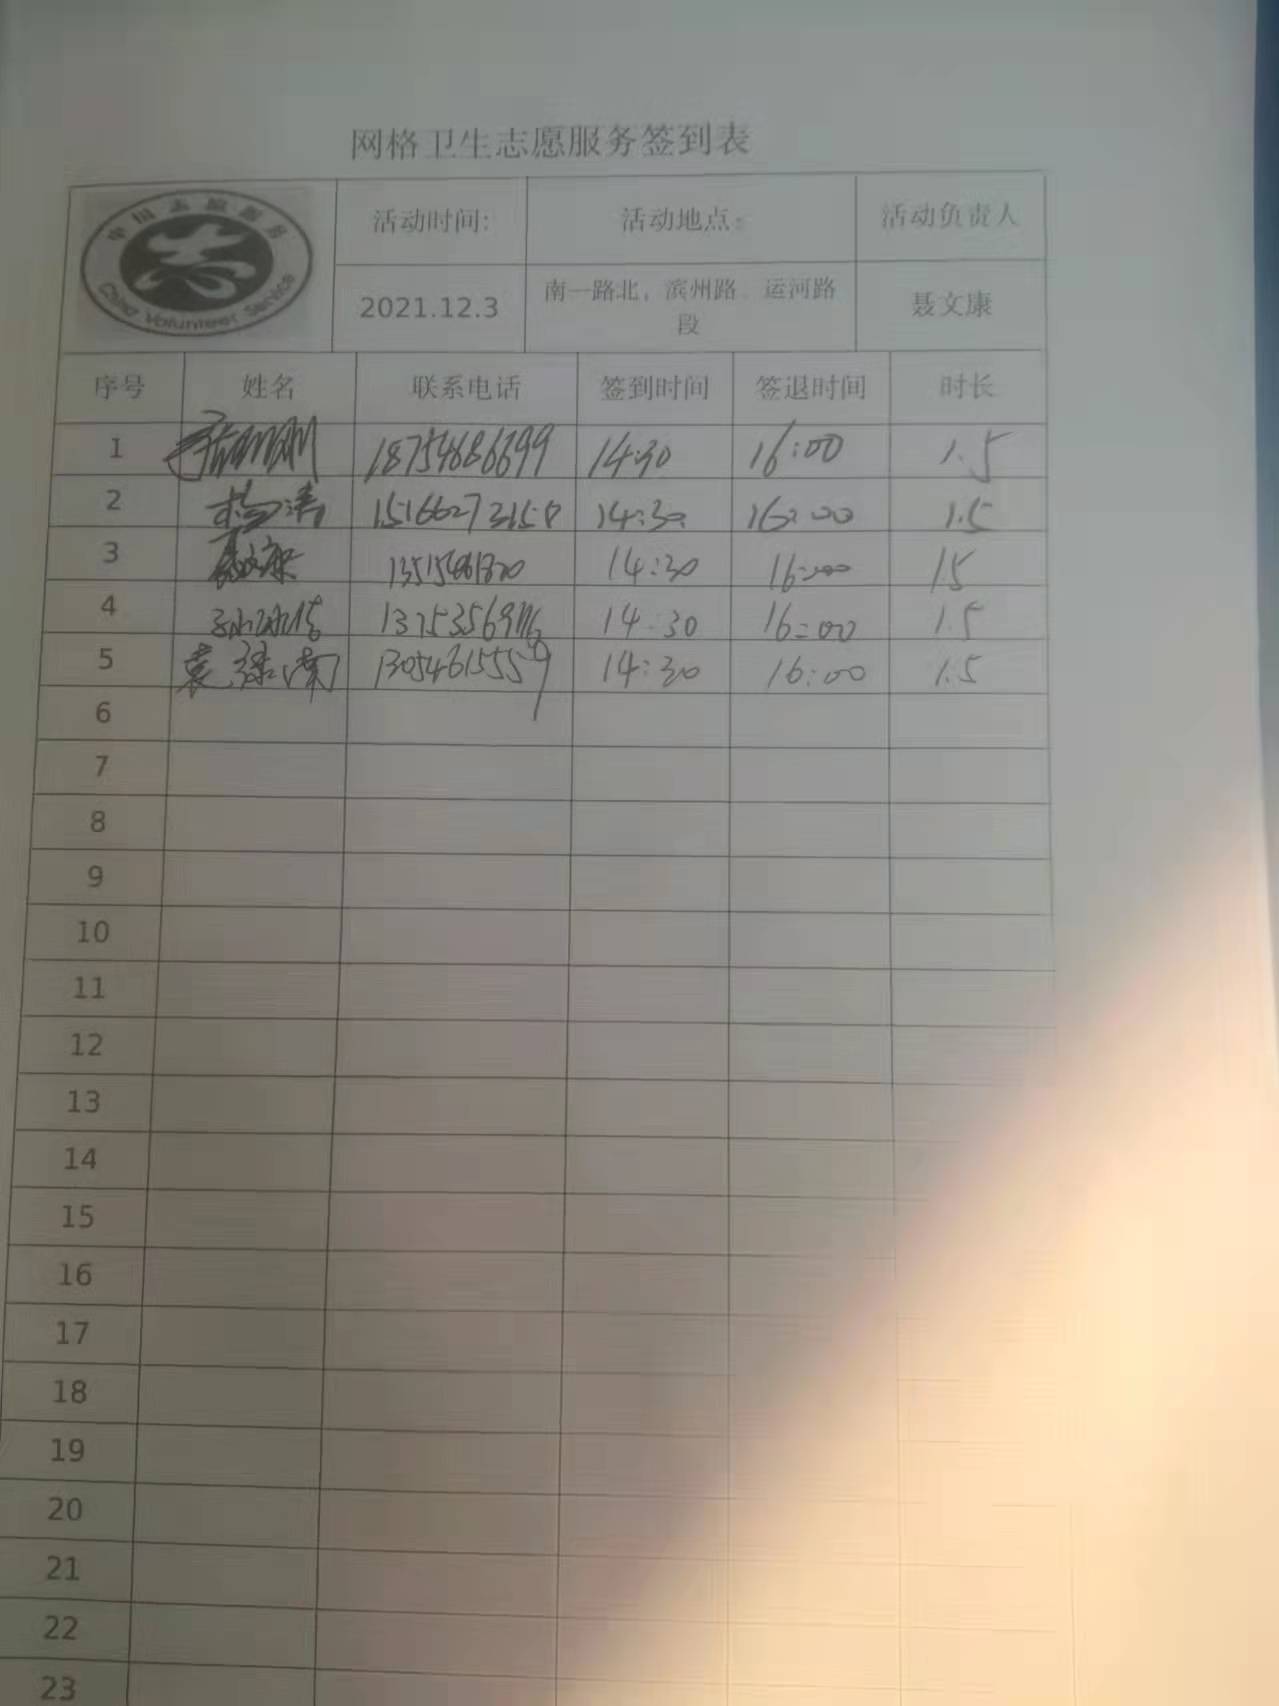 网格卫生志愿服务签到表
中国志愿服务
China Volunteer Service
活动时间: 活动地点: 活动负责人
2021.12.3 南一路北，滨州路、运河路段 聂文康
序号 姓名 联系电话 签到时间 签退时间 时长
1 18754686699 14:30 16:00 1.5
2 14:30 16:00 1.5
3 聂文康 14:30 16:00 15
4 14:30 16:00 1.5
5 袁 13054615559 14:30 16:00 1.5
6
7
8
9
10
11
12
13
14
15
16
17
18
19
20
21
22
23